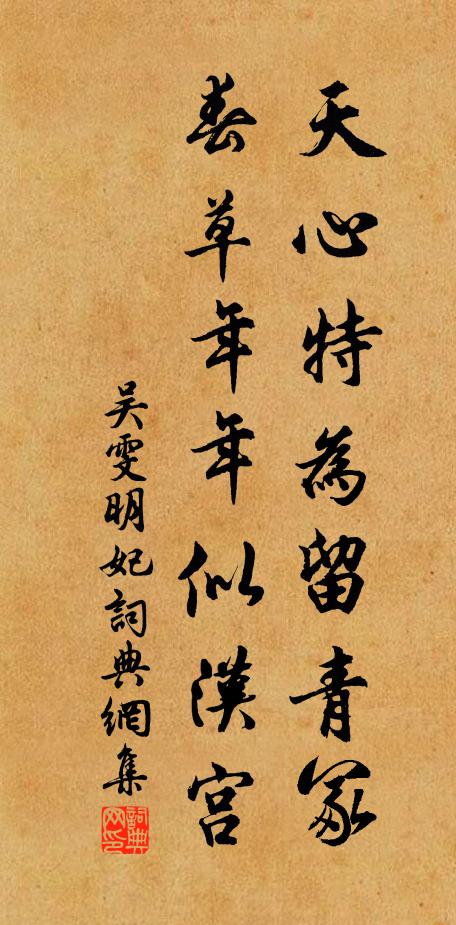 天心特為留青冢
春草年年似漢宮
吴雯明妃詞典網集
詞典网印